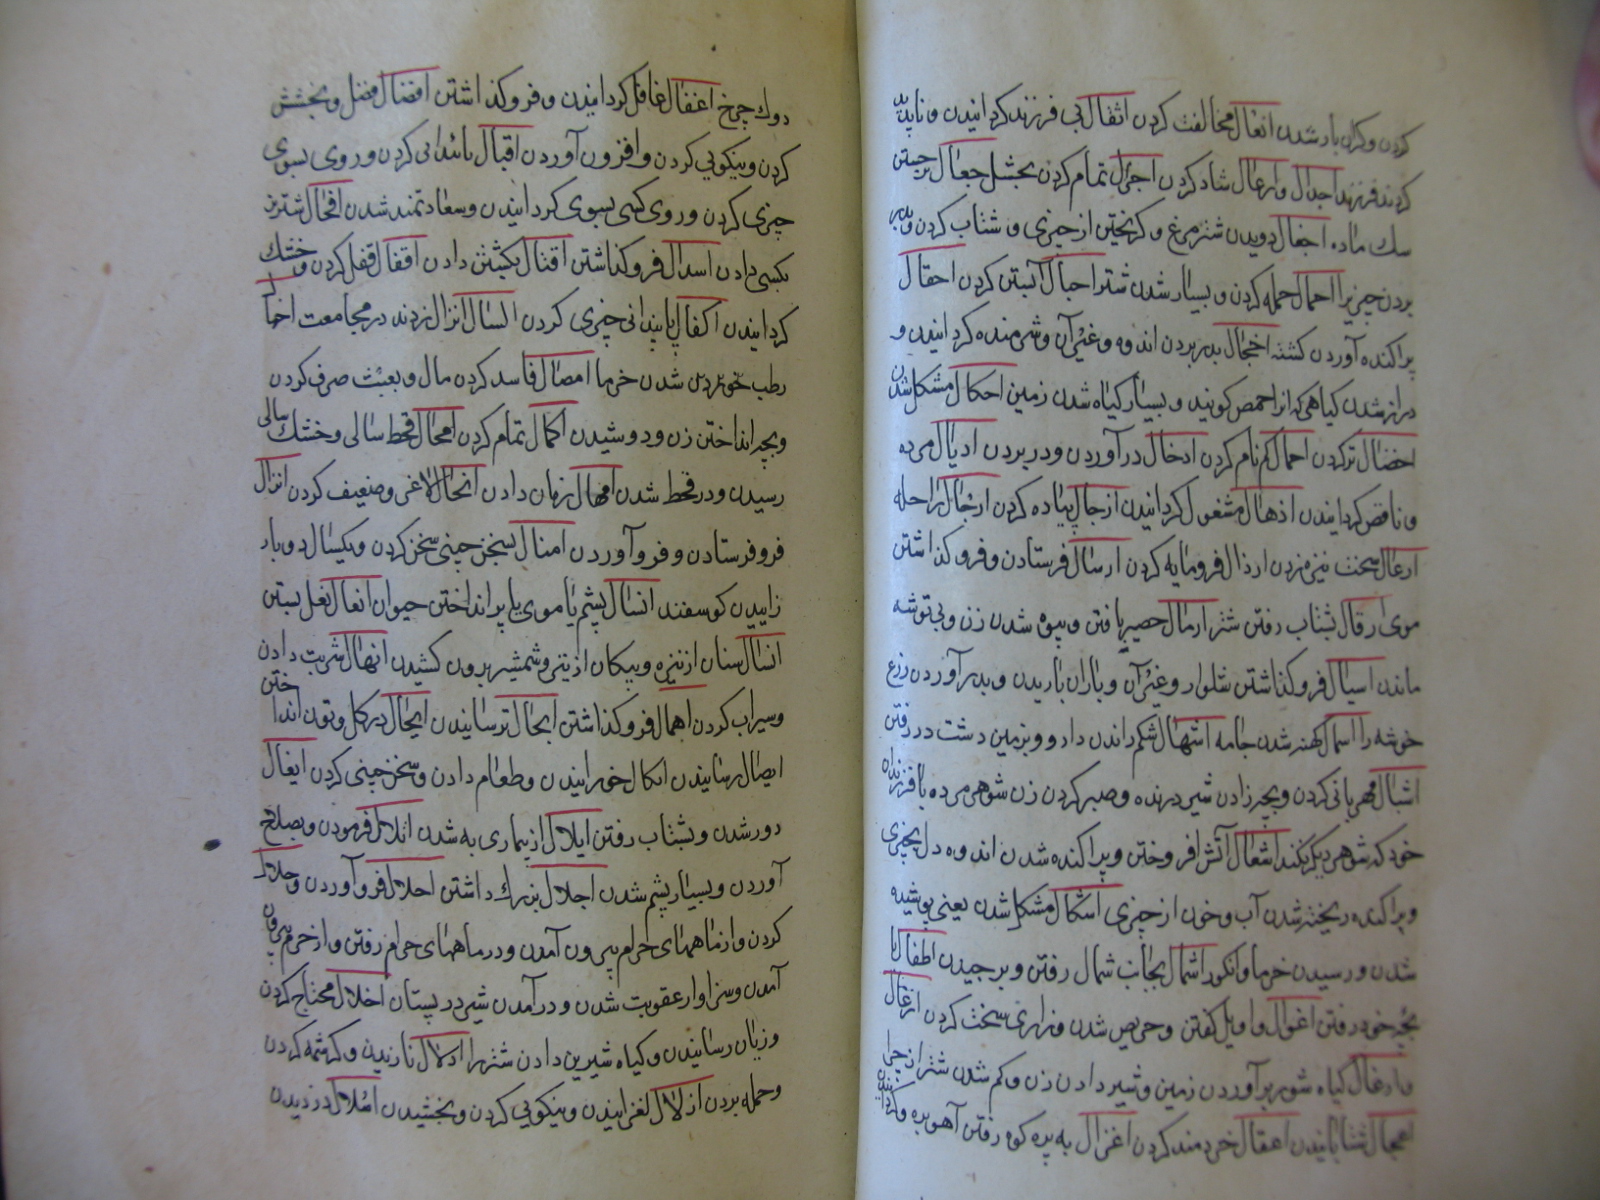 کردن و کران بار شدن انعال مخالفت کردن اثقال بی فرزند کردانیدن و ناپدید
کردند فرزند اجدال و ارعال شاد کردن اجزال تمام کردن بخشش اجعال جستن
سک ماده اجفال دویدن شترمرغ و کریختن از چیزی و شتاب کردن و بدر
بردن چیزیرا احمال حمله کردن و بسیار شدن شتر احبال آبستن کردن احقال
پراکنده آوردن کشته اخجال بدر بردن اندوه و غیر آن و شرمنده کردانیدن و
دراز شدن کیاهی که انرا حمص کویند و بسیار کیاه شدن زمین احکال مشکل شدن
اخضال تر کردن اخمال کم نام کردن ادخال در آوردن و در بردن ادیال مرده
و ناقص کردانیدن اذهال مشغول کردانیدن ارجال پیاده کردن ارحال راحله
ارعال سخت نیزه زدن ارذال فرومایه کردن ارسال فرستادن و فرو کذاشتن
موی ارقال بشتاب رفتن شتر ارمال حصیر بافتن و بیوه شدن زن و بی توشه
ماندن اسبال فرو کذاشتن شلوار و غیر آن و باران باریدن و بدر آوردن زرع
خوشه را اسمال کهنه شدن جامه اسهال شکم راندن دارو و بزمین دشت در رفتن
اشبال مهربانی کردن و بچه زادن شیر درنده و صبر کردن زن شوهر مرده با فرزندان
خود که شوهر دیکر نکند اشعال آتش افروختن و پراکنده شدن اندوه دل بچیزی
و پراکنده ریخته شدن آب و خون از چیزی اشکال مشکل شدن یعنی پوشیده
شدن و رسیدن خرما و انکور اشمال بجانب شمال رفتن و برچیدن اطفال با
بچه خود رفتن اعوال واویل کفتن و حریص شدن و زاری سخت کردن ازغال
و ارغال کیاه شور بر آوردن زمین و شیر دادن زن و کم شدن شتر از چرا
اعجال شتابانیدن اعقال خردمند کردن اغزال به پره کوه رفتن آهو بره و کردانیدن
دوك چرخ اغفال غافل کردانیدن و فرو کذاشتن افضال فضل و بخشش
کردن و نیکویی کردن و افزون آوردن اقبال پایندانی کردن و روی بسوی
چیزی کردن و روی کسی بسوی کردانیدن و سعادتمند شدن افحال شتر نر
بکسی دادن اسدال فرو کذاشتن اقتال بکشتن دادن اقفال قفل کردن و خشك
کردانیدن اکفال پایندانی چیزی کردن اکسال انزال نزدند در مجامعت اخما ل
رطب شدن خرما امصال فاسد کردن مال و بعبث صرف کردن
و بچه انداختن زن و دوشیدن اکمال تمام کردن امحال قحط سالی و خشك سالی
رسیدن و در قحط شدن امهال زمان دادن انحال لاغر و ضعیف کردن انزال
فرو فرستادن و فرو آوردن امنال سخن چینی سخن کردن و یکسال دوبار
زاییدن کوسفند انسال پشم یا موی یا پر انداختن حیوان انعال نعل بستن
انصال سنان از نیزه و پیکان از تیر و شمشیر برون کشیدن انهال شربت دادن
و سیراب کردن اهمال فرو کذاشتن ایجال ترسانیدن ایحال در کل و توت انداختن
ایصال رسانیدن ایکال خورانیدن و طعام دادن و سخن چینی کردن ایغال
دور شدن و بشتاب رفتن ابلال از بیماری به شدن اثلال فرمودن و بصلاح
آوردن و بسیار پشم شدن اجلال بزرك داشتن احلال فرو آوردن و حلال
کردن و از ماههای حرام بیرون آمدن و در ماههای حرام رفتن و از حرم بیرون
آمدن و سزاوار عقوبت شدن و در آمدن شیر در پستان اخلال محتاج کردن
و زیان رسانیدن و کیاه شیرین دادن شتر را ادلال نازیدن و کرشمه کردن
و حمله بردن ازلال لغزانیدن و نیکویی کردن و بخشیدن اسلال دزدیدن